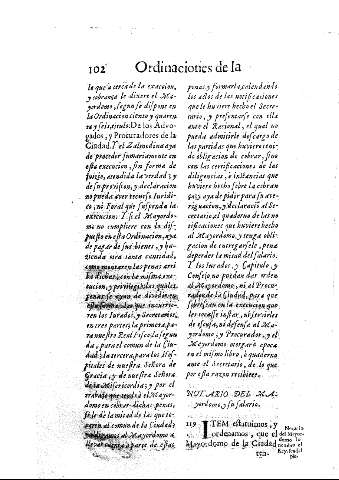 102 Ordinaciones de la
lo que a cerca de la exaccion,
y cobrança le diuere el Ma-
yordomo, segun se dispone en
la Ordinacion ciento y quaren-
ta y seis, titulo: De los Aduo-
gados, y Procuradores de la
Ciudad. Y el Zalmedina aya
de proceder sumariamente en
esta execucion, sin forma de
juizio, atendida la verdad; y
de su prouision, y declaracion
no pueda auer recurso Iuridi-
co, ni Foral que suspenda la
execucion: Y si el Mayordo-
mo no cumpliere con lo dis-
puesto en esta Ordinacion, aya
de pagar de sus bienes, y ha-
zienda otra tanta cantidad,
como montaren las penas arri-
ba dichas, con la misma exe-
cucion, y priuilegios, las quales
penas se ayan de
que incurrie-
ren los Iurados, y Secretario,
en tres partes; la primera, pa-
ra nuestro Real Fisco; la segun-
da, para el comun de la Ciu-
dad; y la tercera, para los Hos-
pitales de nuestra Señora de
Gracia, y de nuestra Señora
de la Misericordia; y por el
trabajo que tendrá el Mayor-
domo en cobrar dichas penas,
se le de la mitad de las que to-
caren al comun de la Ciudad:
Y el Mayordomo a
cuenta a parte de estas
penas, y formarla, calendando
los actos de las notificaciones
que le huuiere hecho el Secre-
tario, y presentarse con ella
ante el Racional, el qual no
pueda admitirle descargo de
las partidas que huuiere teni-
do obligacion de cobrar, sino
con las certificaciones de las
diligencias, è instancias que
huuiere hecho sobre la cobran-
ça; y aya de pidir para su aue-
riguacion, y declaracion al Se-
cretario, el quaderno de las no-
tificaciones que huuiere hecho
al Mayordomo, y tenga obli-
gacion de entregarselo, pena
de perder la mitad del salario.
Y los Iurados, y Capitulo, y
Consejo no puedan dar orden
al Mayordomo, ni al Procu-
rador de la Ciudad, para que
sobresean en la execucion que
les tocasse instar, ni seruirles
de escusa, no defensa al Ma-
yordomo, y Procurador, y el
Mayordomo otorgará apoca
en el mismo libro, ò quaderno
ante el Secretario, de lo que
por esta razon recibiere.
NOTARIO DEL MA-
yordomo, y su salario.
119 ITEM estatuimos, y
ordenamos, que el
Mayordomo de la Ciudad
ten-
Notario
del Mayor-
domo